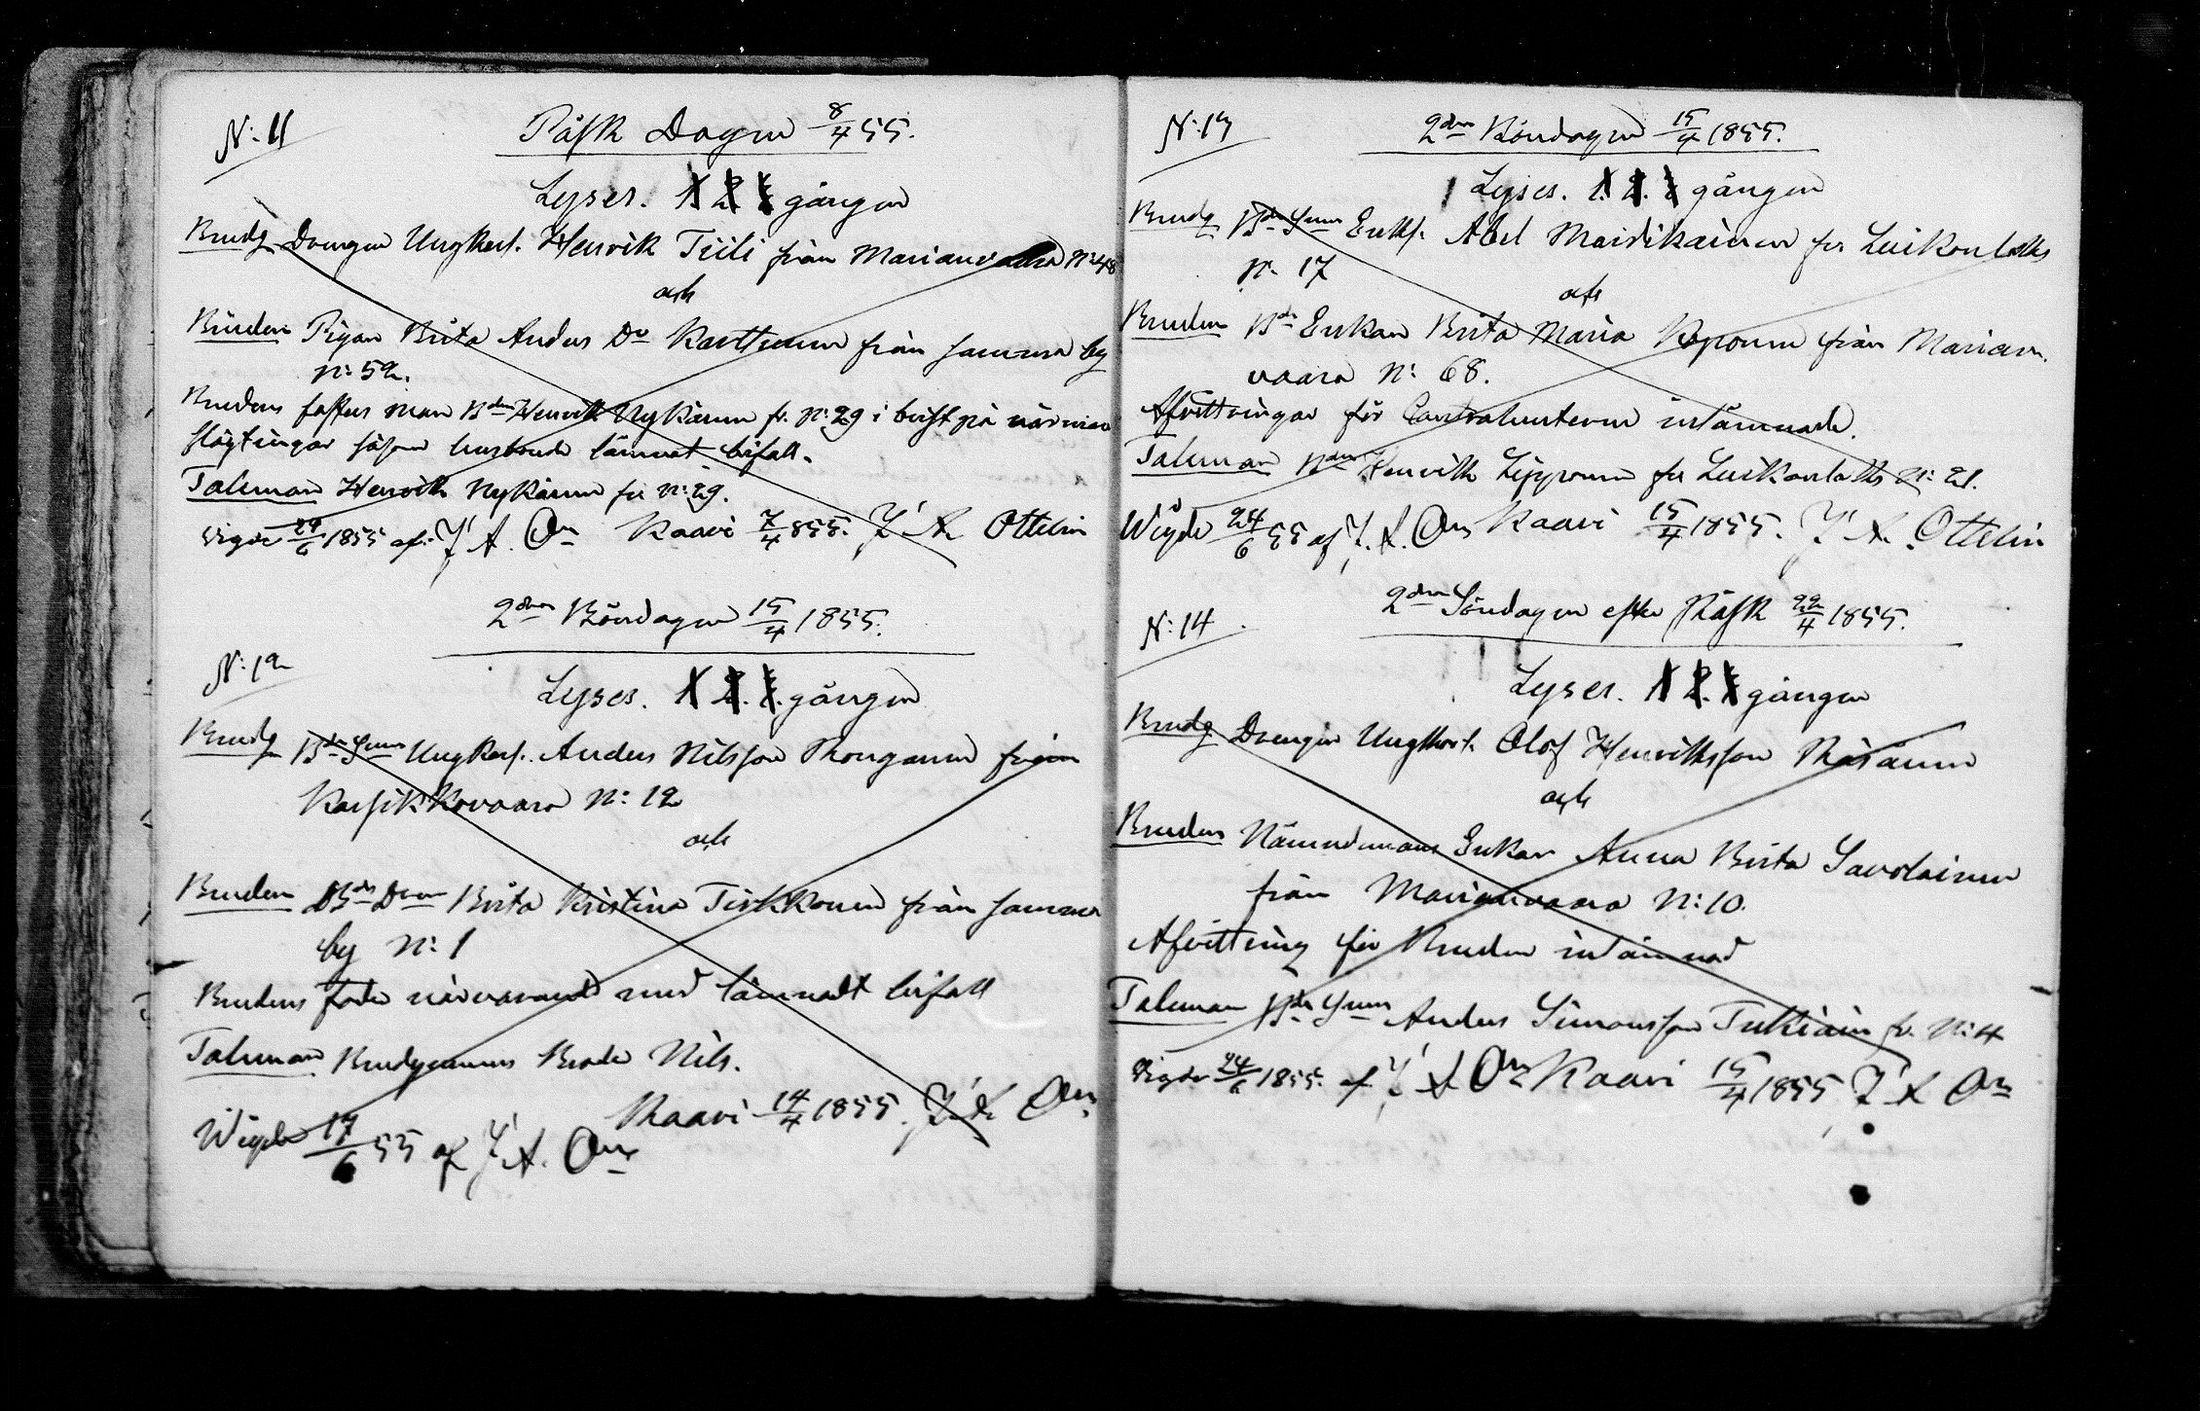 N: 11
Påsk Dagen 8/4 55.
Lyses. 1 2 3 gången
Brudg Drengen Ungkarl. Henrik Tiili från Marianvaara N: 48
och
Bruden Pigan Brita Anders Dr Karttunen från samma by
N: 52.
Brudens fosters man Bdn Henrik Nykänen fr. N: 29 i brist på närmare
slägtingar såsom husbonde lämnat bifall.
Taleman Henrik Nykänen fr N: 29.
Vigde 24/6 1855 af J. A. On Kaavi 7/4 855. J A Ottelin
2dra Böndagen 15/4 1855.
N: 12
Lyses. 1 2. 3. gången
Brudg Bde Snen Ungkarl. Anders Nilsson Konganen från
Karsikkovaara N: 12
och
Bruden Bds Dren Brita Kristina Tirkkonen från samma
by N: 1
Brudens fader närvarande med lämnadt bifall
Taleman Brudgumens Broder Nils.
Kaavi 14/4 1855. J. A. On
Wigde 17/6 55 af J. A. On
N: 13
2dra Böndagen 15/4 1855.
Lyses. 1. 2. 3 gången
Brudg Bde Snen Enkl. Abel Maidikainen fr Luikonlaks
N: 17
och
Bruden Bde Enkan Brita Maria Reponen från Marian-
vaara N: 68.
Afvittringar för Contrahenterne inlämnade.
Taleman Bdn Henrik Lipponen fr Luikonlaks N: 21.
Wigde 24/6 55 af J. A. On Kaavi 15/4 1855. J. A. Ottelin
N: 14
2dra Söndagen efter Påsk 22/4 1855.
Lyses. 1 2. 3 gången
Brudg Drengen Ungkarl. Olof Henriksson Räsänen
och
Bruden Nämndemans Enkan Anna Brita Savolainen
från Marianvaara N: 10.
Afvittring för Bruden inlämnad
Taleman Bde Snen Anders Simonsson Tukiain fr. N: 4
Vigde 24/6 1855. af J A On Kaavi 15/4 1855 J A On